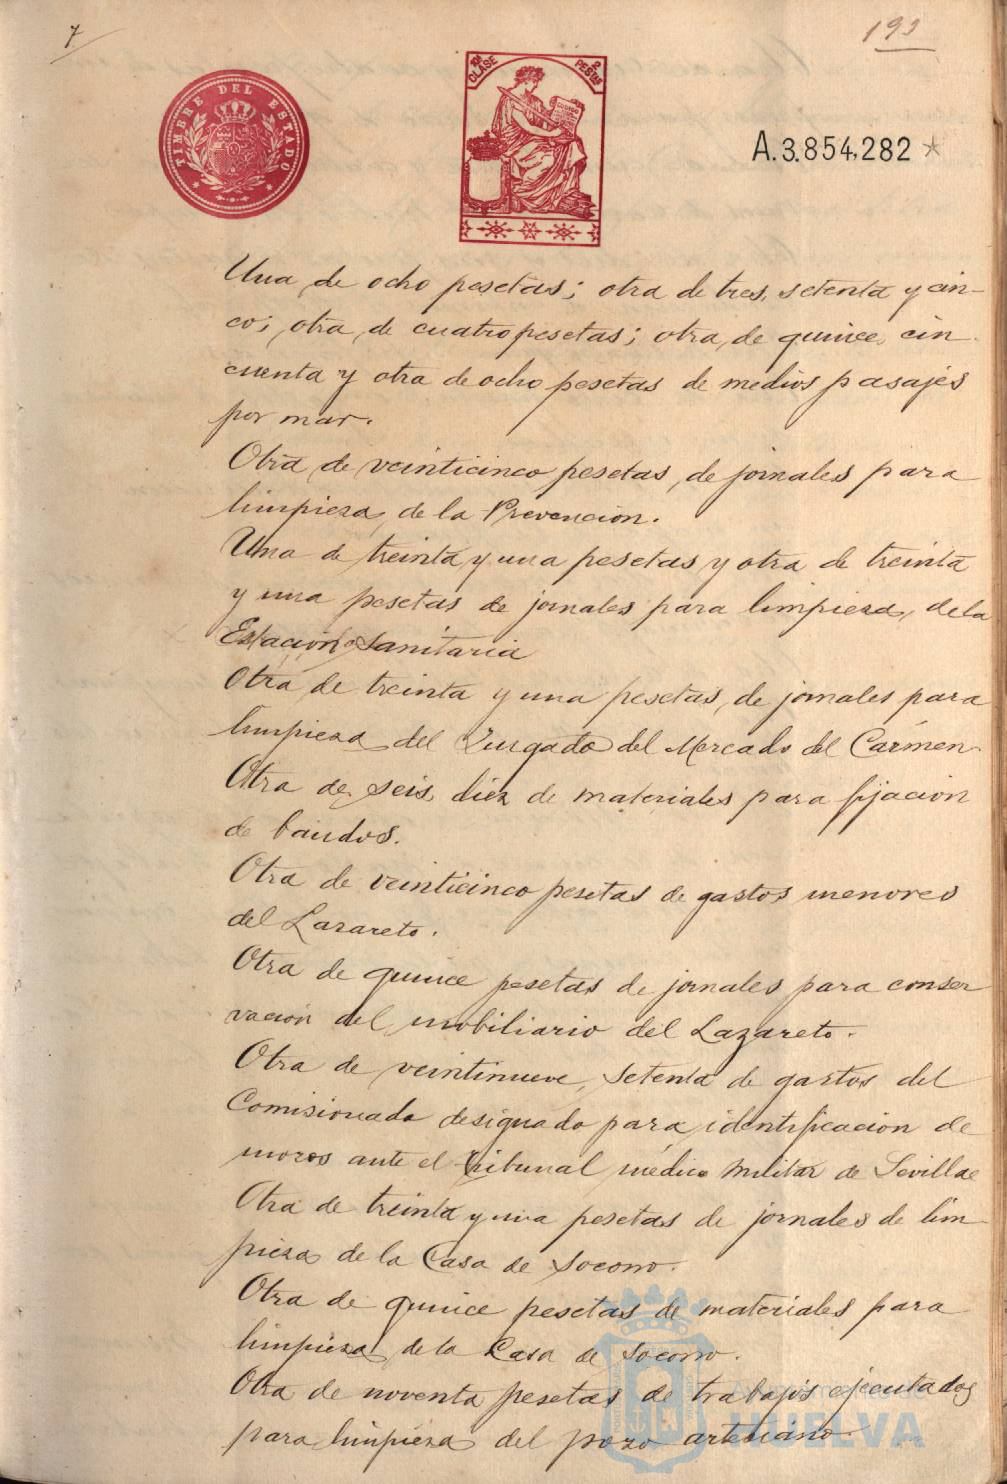 7
193
TIMBRE DEL ESTADO
10ª CLASE
2 PESTAS
CODIGO
A.3.854,282 *
Una de ocho pesetas; otra de tres, setenta y cin-
co; otra de cuatro pesetas; otra de quince, cin
cuenta y otra de ocho pesetas de medios pasajes
por mar.
Otra de veinticinco pesetas, de jornales para
limpieza de la Prevencion.
Una de treinta y una pesetas y otra de treinta
y una pesetas de jornales para limpieza de la
Estación Sanitaria
Otra de treinta y una pesetas, de jornales para
limpieza del Juzgado del Mercado del Cármen.
Otra de seis, diez de materiales para fijacion
de bandos.
Otra de veinticinco pesetas de gastos menores
del Lazareto.
Otra de quince pesetas de jornales para conser
vacion del mobiliario del Lazareto.
Otra de veintinueve, setenta de gastos del
Comisionado designado para identificacion de
mozos ante el tribunal médico militar de Sevilla
Otra de treinta y una pesetas de jornales de lim-
pieza de la Casa de Socorro.
Otra de quince pesetas de materiales para
limpieza de la Casa de Socorro.
Otra de noventa pesetas de trabajos ejecutados
para limpieza del pozo artesiano.
Ayuntamiento de
HUELVA